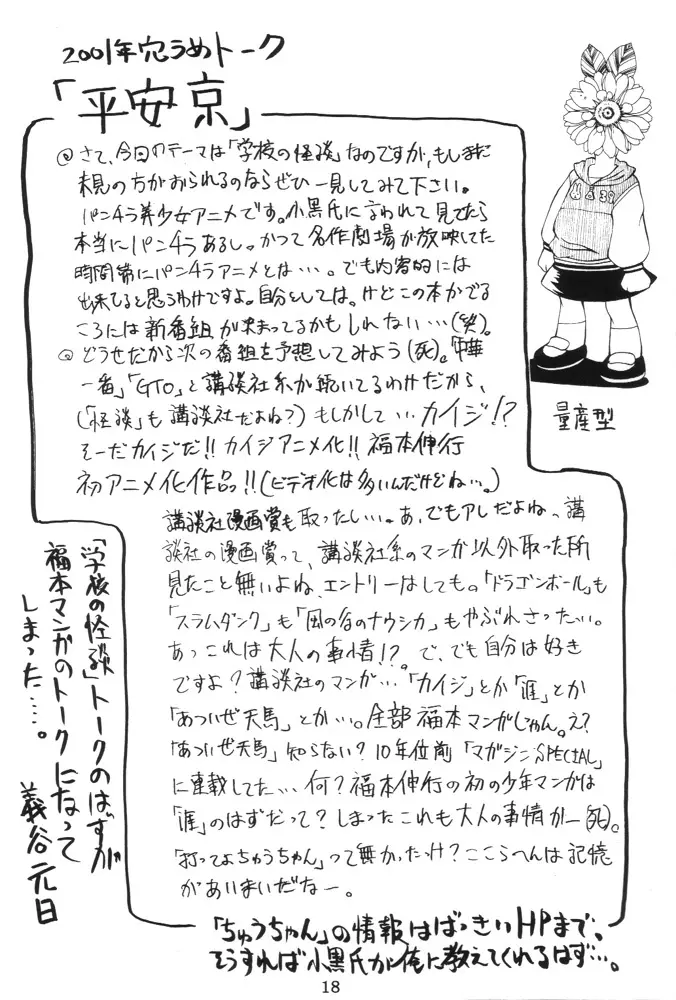 2001年穴うめトーク
「平安京」
◎さて、今回のテーマは「学校の怪談」なのですが、もしまだ
未見の方がおられるのならぜひ一見してみて下さい。
パンチラ美少女アニメです。小黒氏に言われて見てたら
本当にパンチラあるし。かつて名作劇場が放映してた
時間帯にパンチラアニメとは…。でも内容的には
出来てると思うわけですよ。自分としては。けどこの本がでる
ころには新番組が決まってるかもしれない…(笑)。
◎どうせだから次の番組を予想してみよう(死)。「中華
一番」「GTO」と講談社系が続いてるわけだから、
(「怪談」も講談社だよね?)もしかして…カイジ!?
そーだカイジだ!!カイジアニメ化!!福本伸行
初アニメ化作品っ!!(ビデオ化は多いんだけどね…。)
講談社漫画賞も取ったしい…。あ、でもアレだよね、講
談社の漫画賞って、講談社系のマンガ以外取った所
見たこと無いよね、エントリーはしても。「ドラゴンボール」も
「スラムダンク」も「風の谷のナウシカ」もやぶれさったい…。
あっこれは大人の事情!?で、でも自分は好き
ですよ?講談社のマンガ…「カイジ」とか「涯」とか
「あついぜ天馬」とか…。全部福本マンガじゃん。え?
「あついぜ天馬」知らない?10年位前「マガジンSPECIAL」
に連載してた…何?福本伸行の初の少年マンガは
「涯」のはずだって?しまったこれも大人の事情がー(死)。
「打ってよちゅうちゃん」って無かったっけ?ここらへんは記憶
があいまいだなー。
「学校の怪談」トークのはずが
福本マンガのトークになって
しまった…。
義谷元日
「ちゅうちゃん」の情報はばっきぃHPまで。
そうすれば小黒氏が俺に教えてくれるはず…。
量産型
18